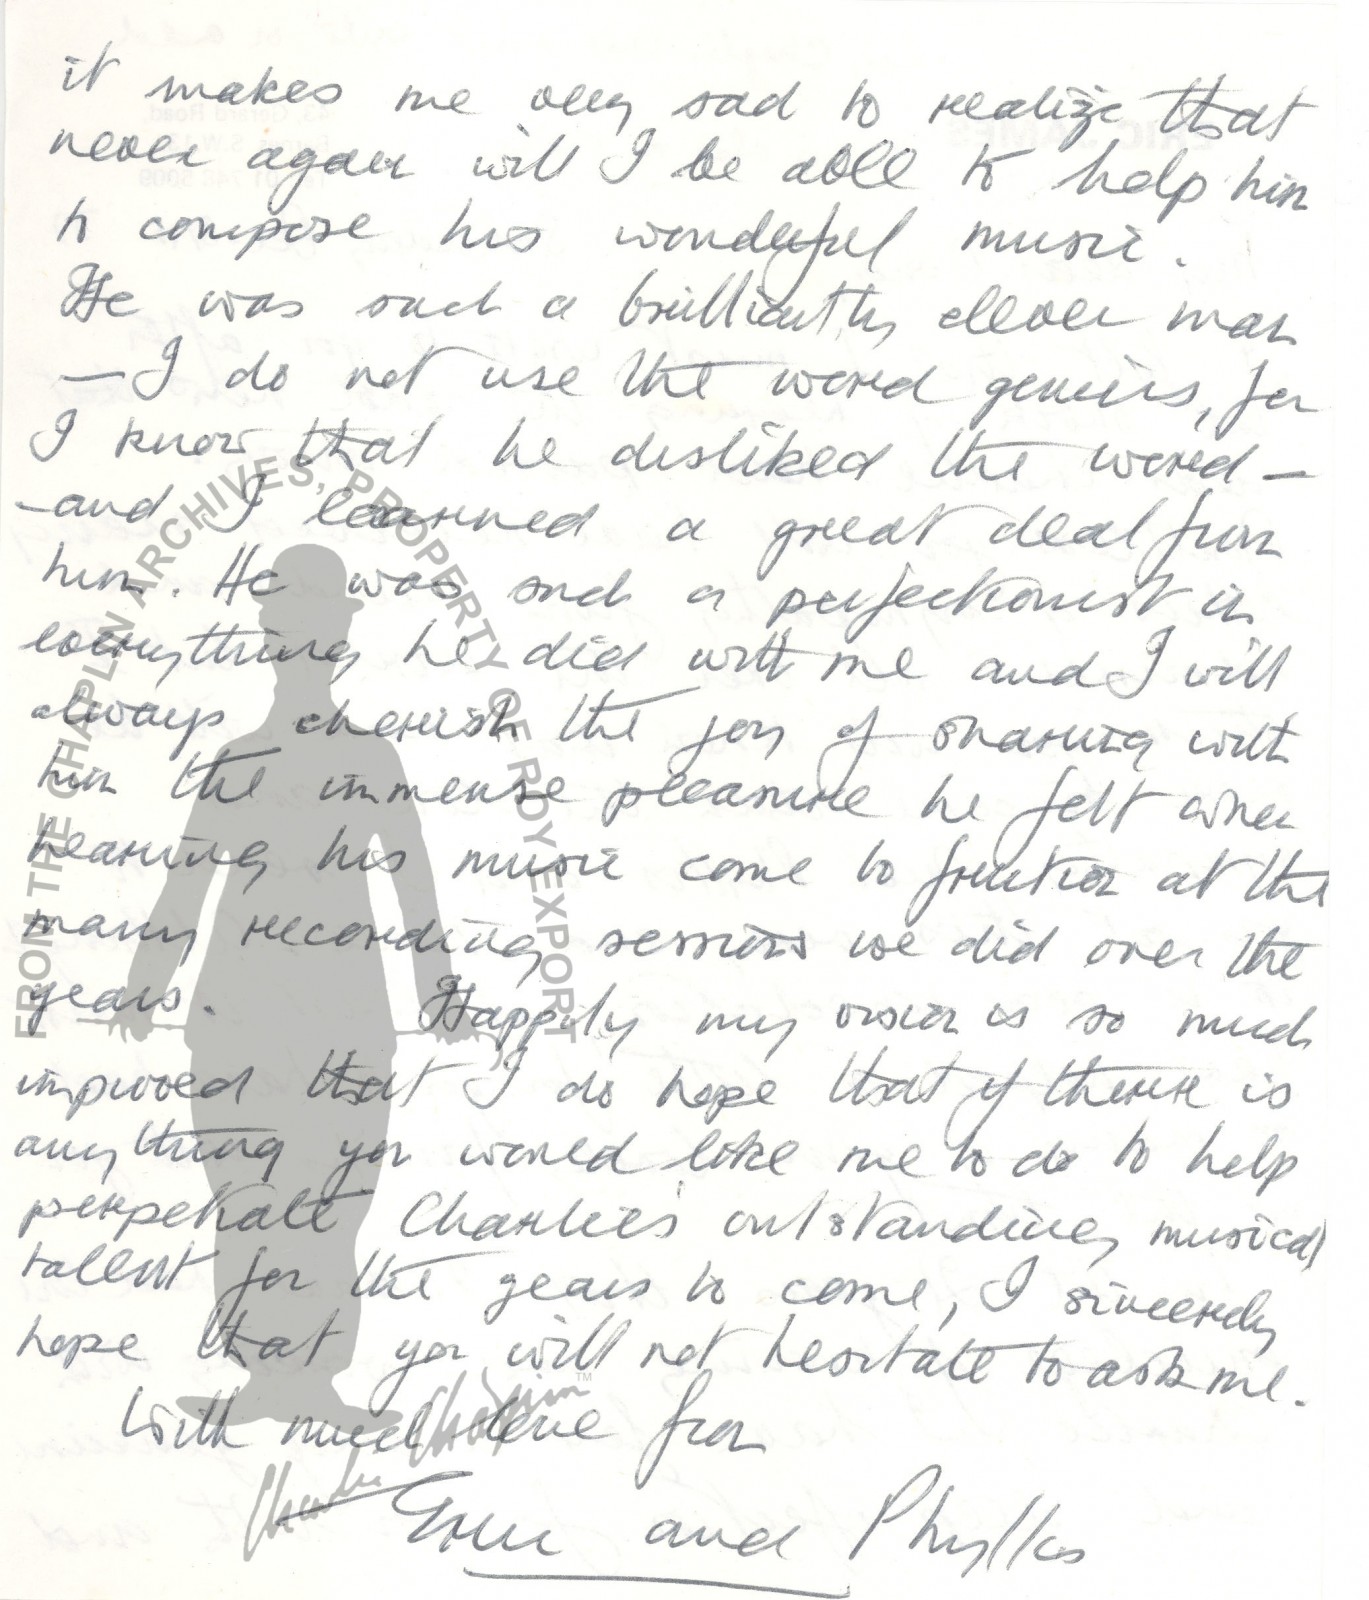 it makes me very sad to realize that
never again will I be able to help him
to compose his wonderful music.
He was such a brilliantly clever man
— I do not use the word genius, for
I know that he disliked the word —
— and I learned a great deal from
him. He was such a perfectionist in
everything he did with me and I will
always cherish the joy of sharing with
him the immense pleasure he felt when
hearing his music come to fruition at the
many recording sessions we did over the
years. Happily my vision is so much
improved that I do hope that if there is
anything you would like me to do to help
perpetuate Charlie's outstanding musical
talent for the years to come, I sincerely
hope that you will not hesitate to ask me.
With much love from
Eric and Phyllis
FROM THE CHAPLIN ARCHIVES, PROPERTY OF ROY EXPORT
Charlie Chaplin™
ERIC JAMES
43, Gerard Road,
Barnes, S.W.13